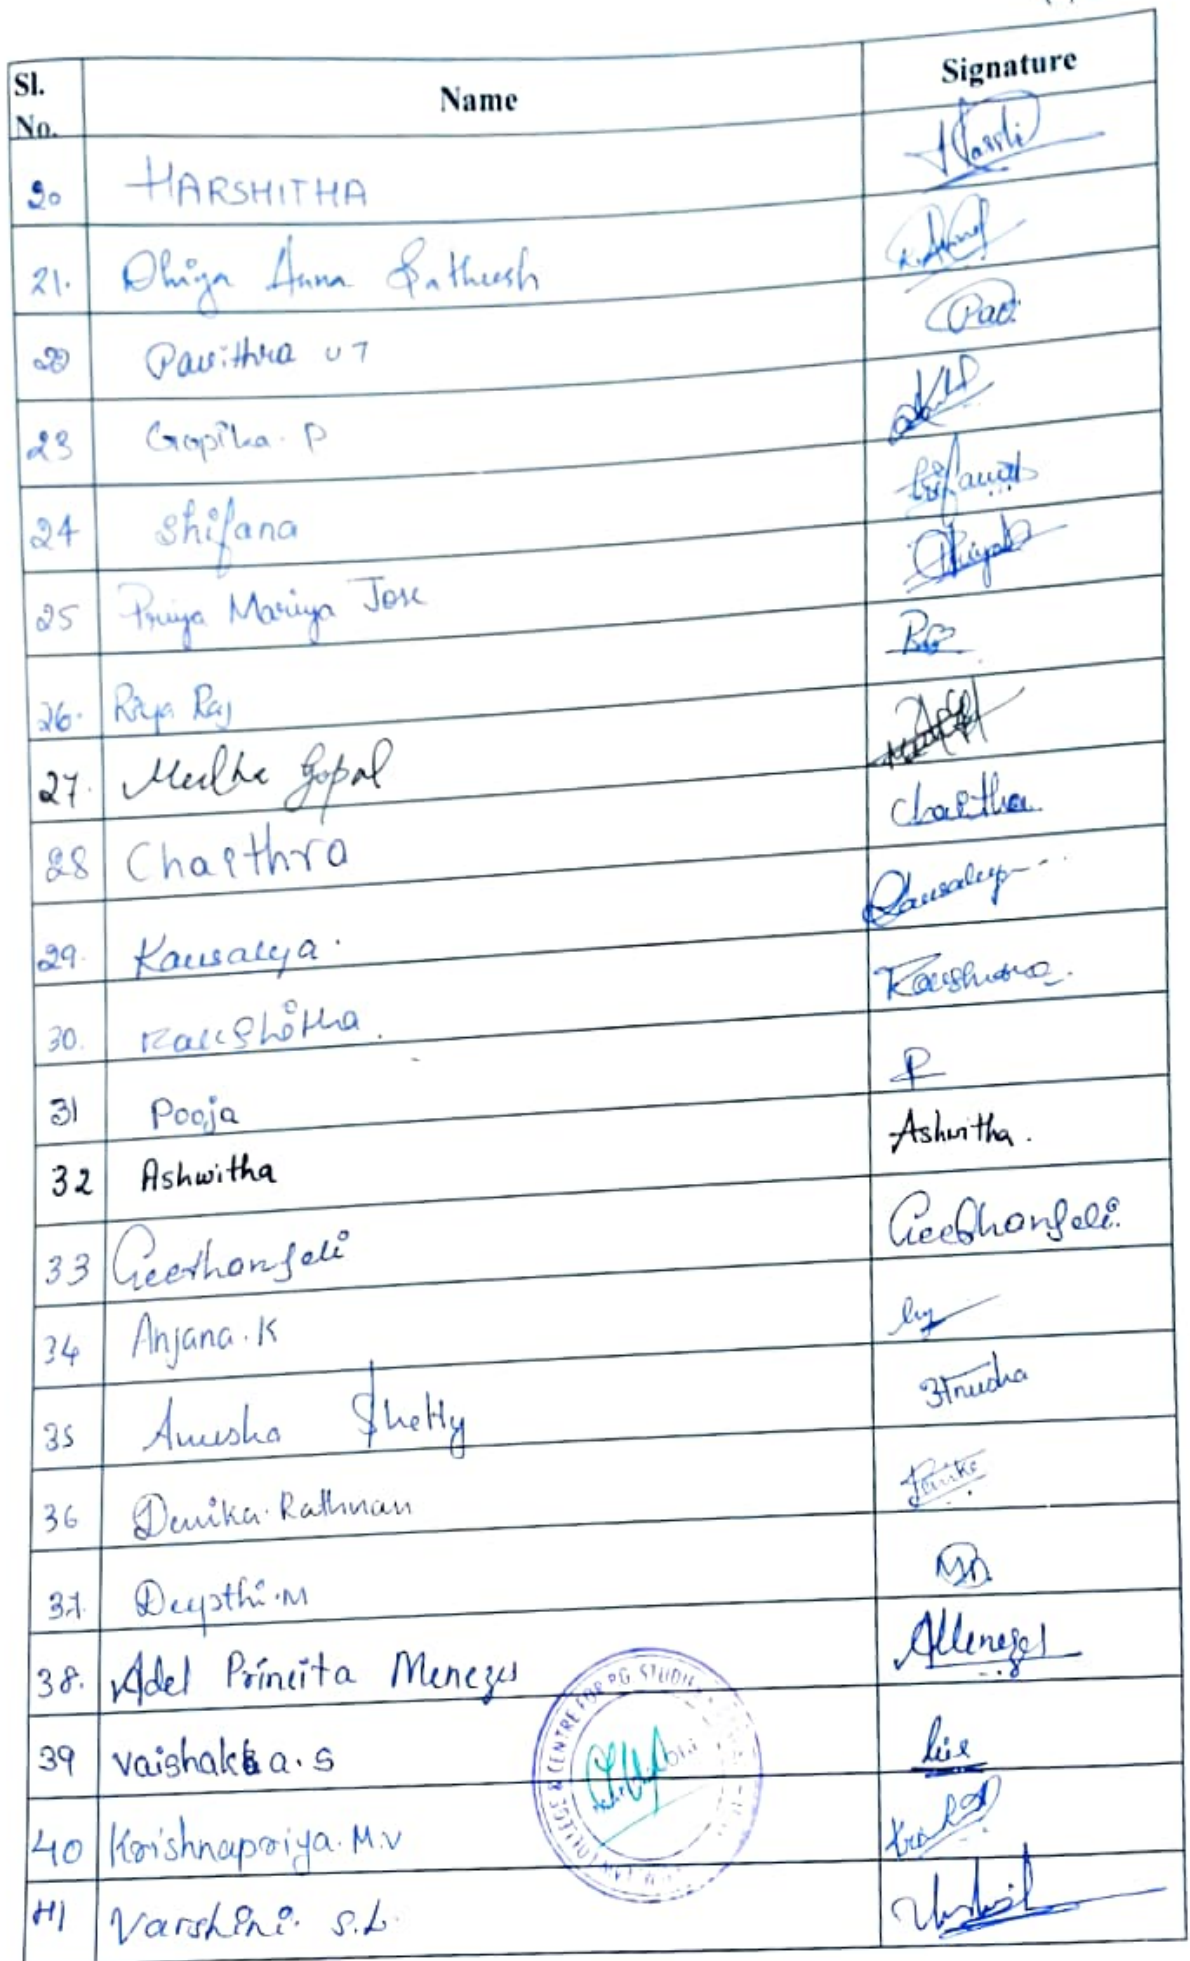 Sl. No. Name Signature
20 HARSHITHA
21. Dhiya Anna Satheesh
22 Pavithra U T Pav
23 Gopika. P
24 Shifana
25 Priya Mariya Jose Priya
26. Riya Raj
27. Medha Gopal
28 Chaithra Chaithra
29. Kausalya. Kausalya
30. Rakshitha.
31 Pooja P
32 Ashwitha Ashwitha.
33 Geethanjali Geethanjali.
34 Anjana. K
35 Anusha Shetty Anusha
36 Denika. Rathnan
37. Deepthi. M
38. Adel Princita Menezes AMenezes
39 Vaishakh a. S
40 Krishnapriya. M.V
41 Varshini. S.L.
COLLEGE & CENTRE FOR PG STUDIES